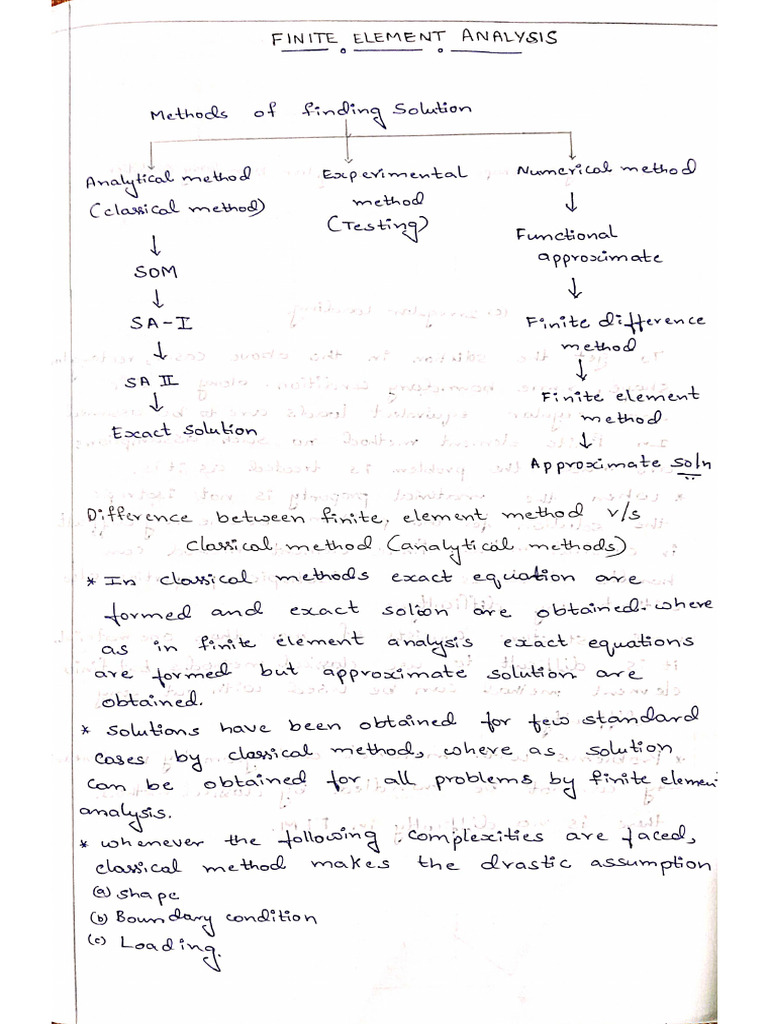 FINITE ELEMENT ANALYSIS
Methods of finding solution
Analytical method
(classical method)
↓
SOM
↓
SA-I
↓
SA II
↓
Exact solution
Experimental
method
(Testing)
Numerical method
↓
Functional
approximate
↓
Finite difference
method
↓
Finite element
method
↓
Approximate soln
Difference between finite element method v/s
classical method (analytical methods)
* In classical methods exact equation are
formed and exact solion are obtained. where
as in finite element analysis exact equations
are formed but approximate solution are
obtained.
* solutions have been obtained for few standard
cases by classical method, where as solution
can be obtained for all problems by finite elemen
analysis.
* whenever the following complexities are faced,
classical method makes the drastic assumption
(a) shape
(b) Boundary condition
(c) Loading.